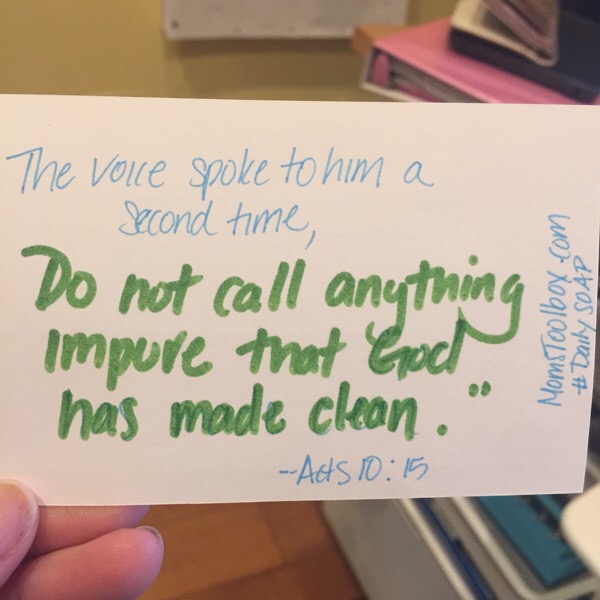 The voice spoke to him a
second time,
Do not call anything
impure that God
has made clean."
--Acts 10:15
MomsToolbox.com
#DailySOAP